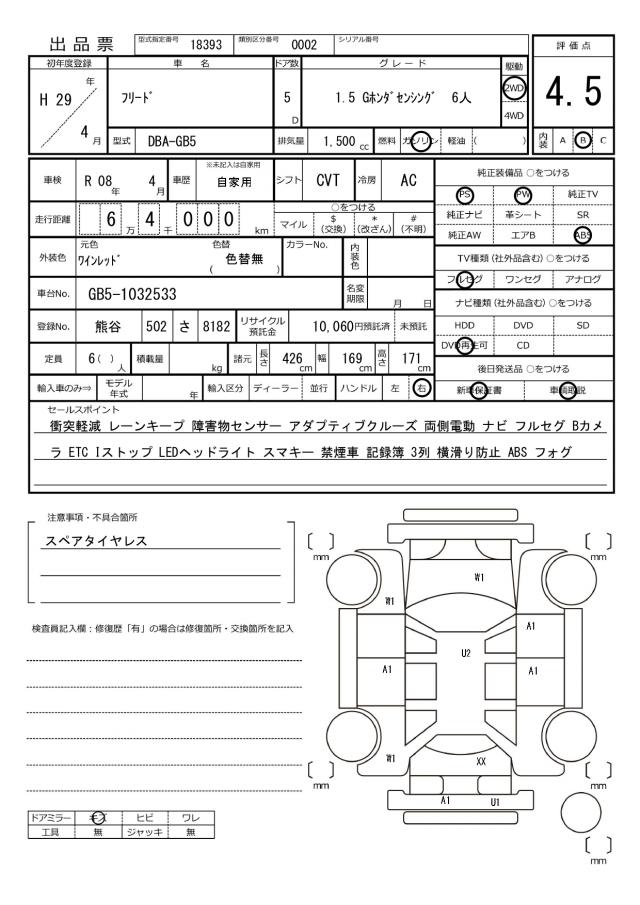 出品票
型式指定番号 18393 類別区分番号 0002 シリアル番号
評価点
4.5
内装 A B C
初年度登録 車名 ドア数 グレード 駆動
H 29 年 4 月
フリード 5 D 1.5 Gホンダセンシング 6人
2WD
4WD
型式 DBA-GB5 排気量 1,500 cc 燃料 ガソリン 軽油 ( )
車検 R 08 年 4 月 車歴 ※未記入は自家用 自家用 シフト CVT 冷房 AC
走行距離 6 万 4 千 0 0 0 km
○をつける
マイル $(交換) *(改ざん) #(不明)
外装色 元色 ワインレッド 色替 ( 色替無 ) カラーNo. 内装色
車台No. GB5-1032533 名変期限 月 日
登録No. 熊谷 502 さ 8182 リサイクル預託金 10,060円預託済 未預託
定員 6 ( ) 人 積載量 kg 諸元 長さ 426 cm 幅 169 cm 高さ 171 cm
輸入車のみ⇒ モデル年式 年 輸入区分 ディーラー 並行 ハンドル 左 右
純正装備品 ○をつける
PS PW 純正TV
純正ナビ 革シート SR
純正AW エアB ABS
TV種類 (社外品含む) ○をつける
フルセグ ワンセグ アナログ
ナビ種類 (社外品含む) ○をつける
HDD DVD SD
DVD再生可 CD
後日発送品 ○をつける
新車保証書 車輌取説
セールスポイント
衝突軽減 レーンキープ 障害物センサー アダプティブクルーズ 両側電動 ナビ フルセグ Bカメ
ラ ETC Iストップ LEDヘッドライト スマキー 禁煙車 記録簿 3列 横滑り防止 ABS フォグ
注意事項・不具合箇所
スペアタイヤレス
検査員記入欄：修復歴「有」の場合は修復箇所・交換箇所を記入
ドアミラー キズ ヒビ ワレ
工具 無 ジャッキ 無
mm mm
W1
W1
A1
U2
A1 A1
W1
XX
mm mm
A1 U1
mm